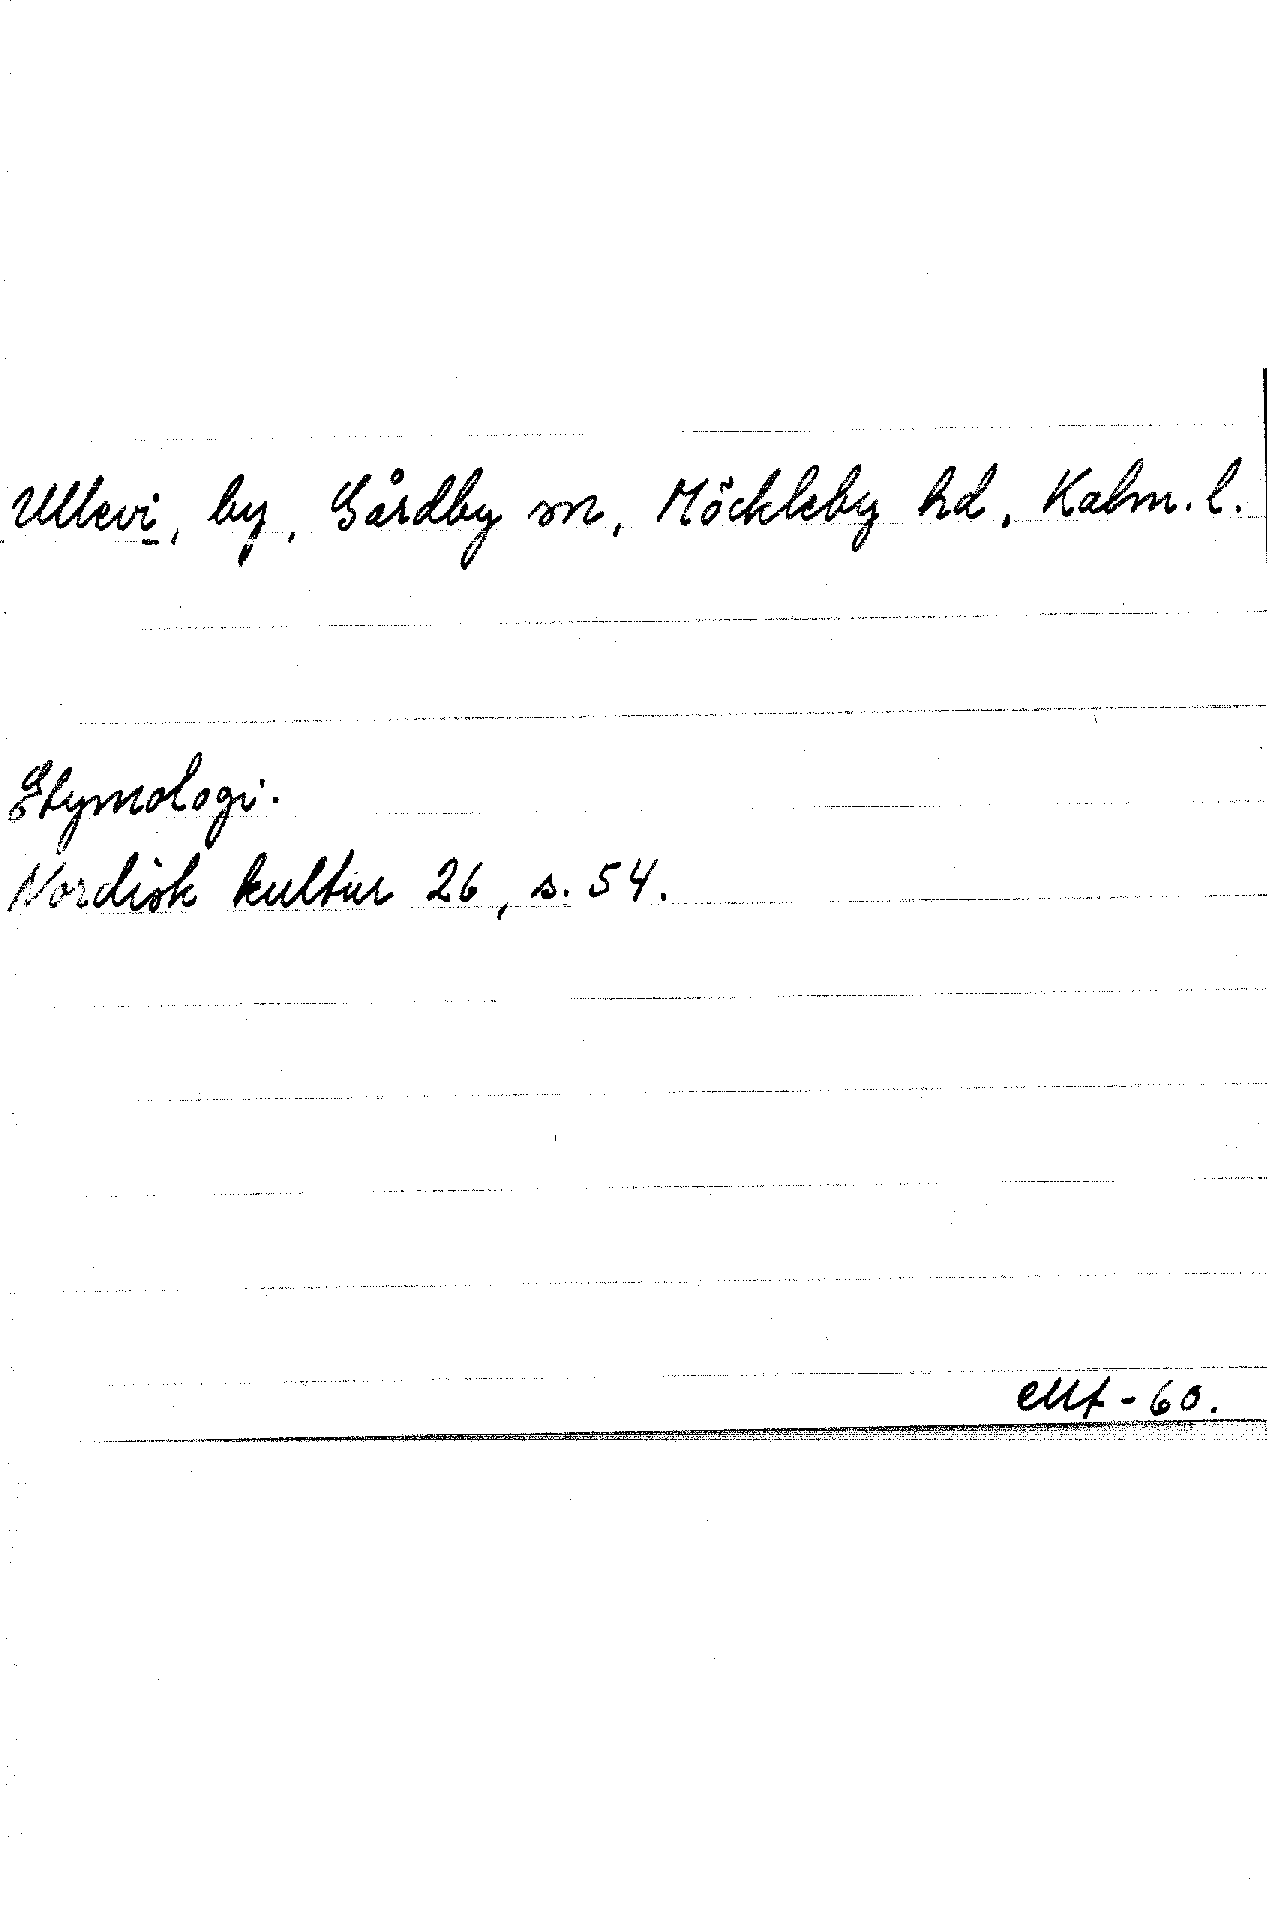 Ullevi, by, Gårdby sn, Möckleby hd, Kalm. l.
Etymologi.
Nordisk kultur 26, s. 54.
-60.